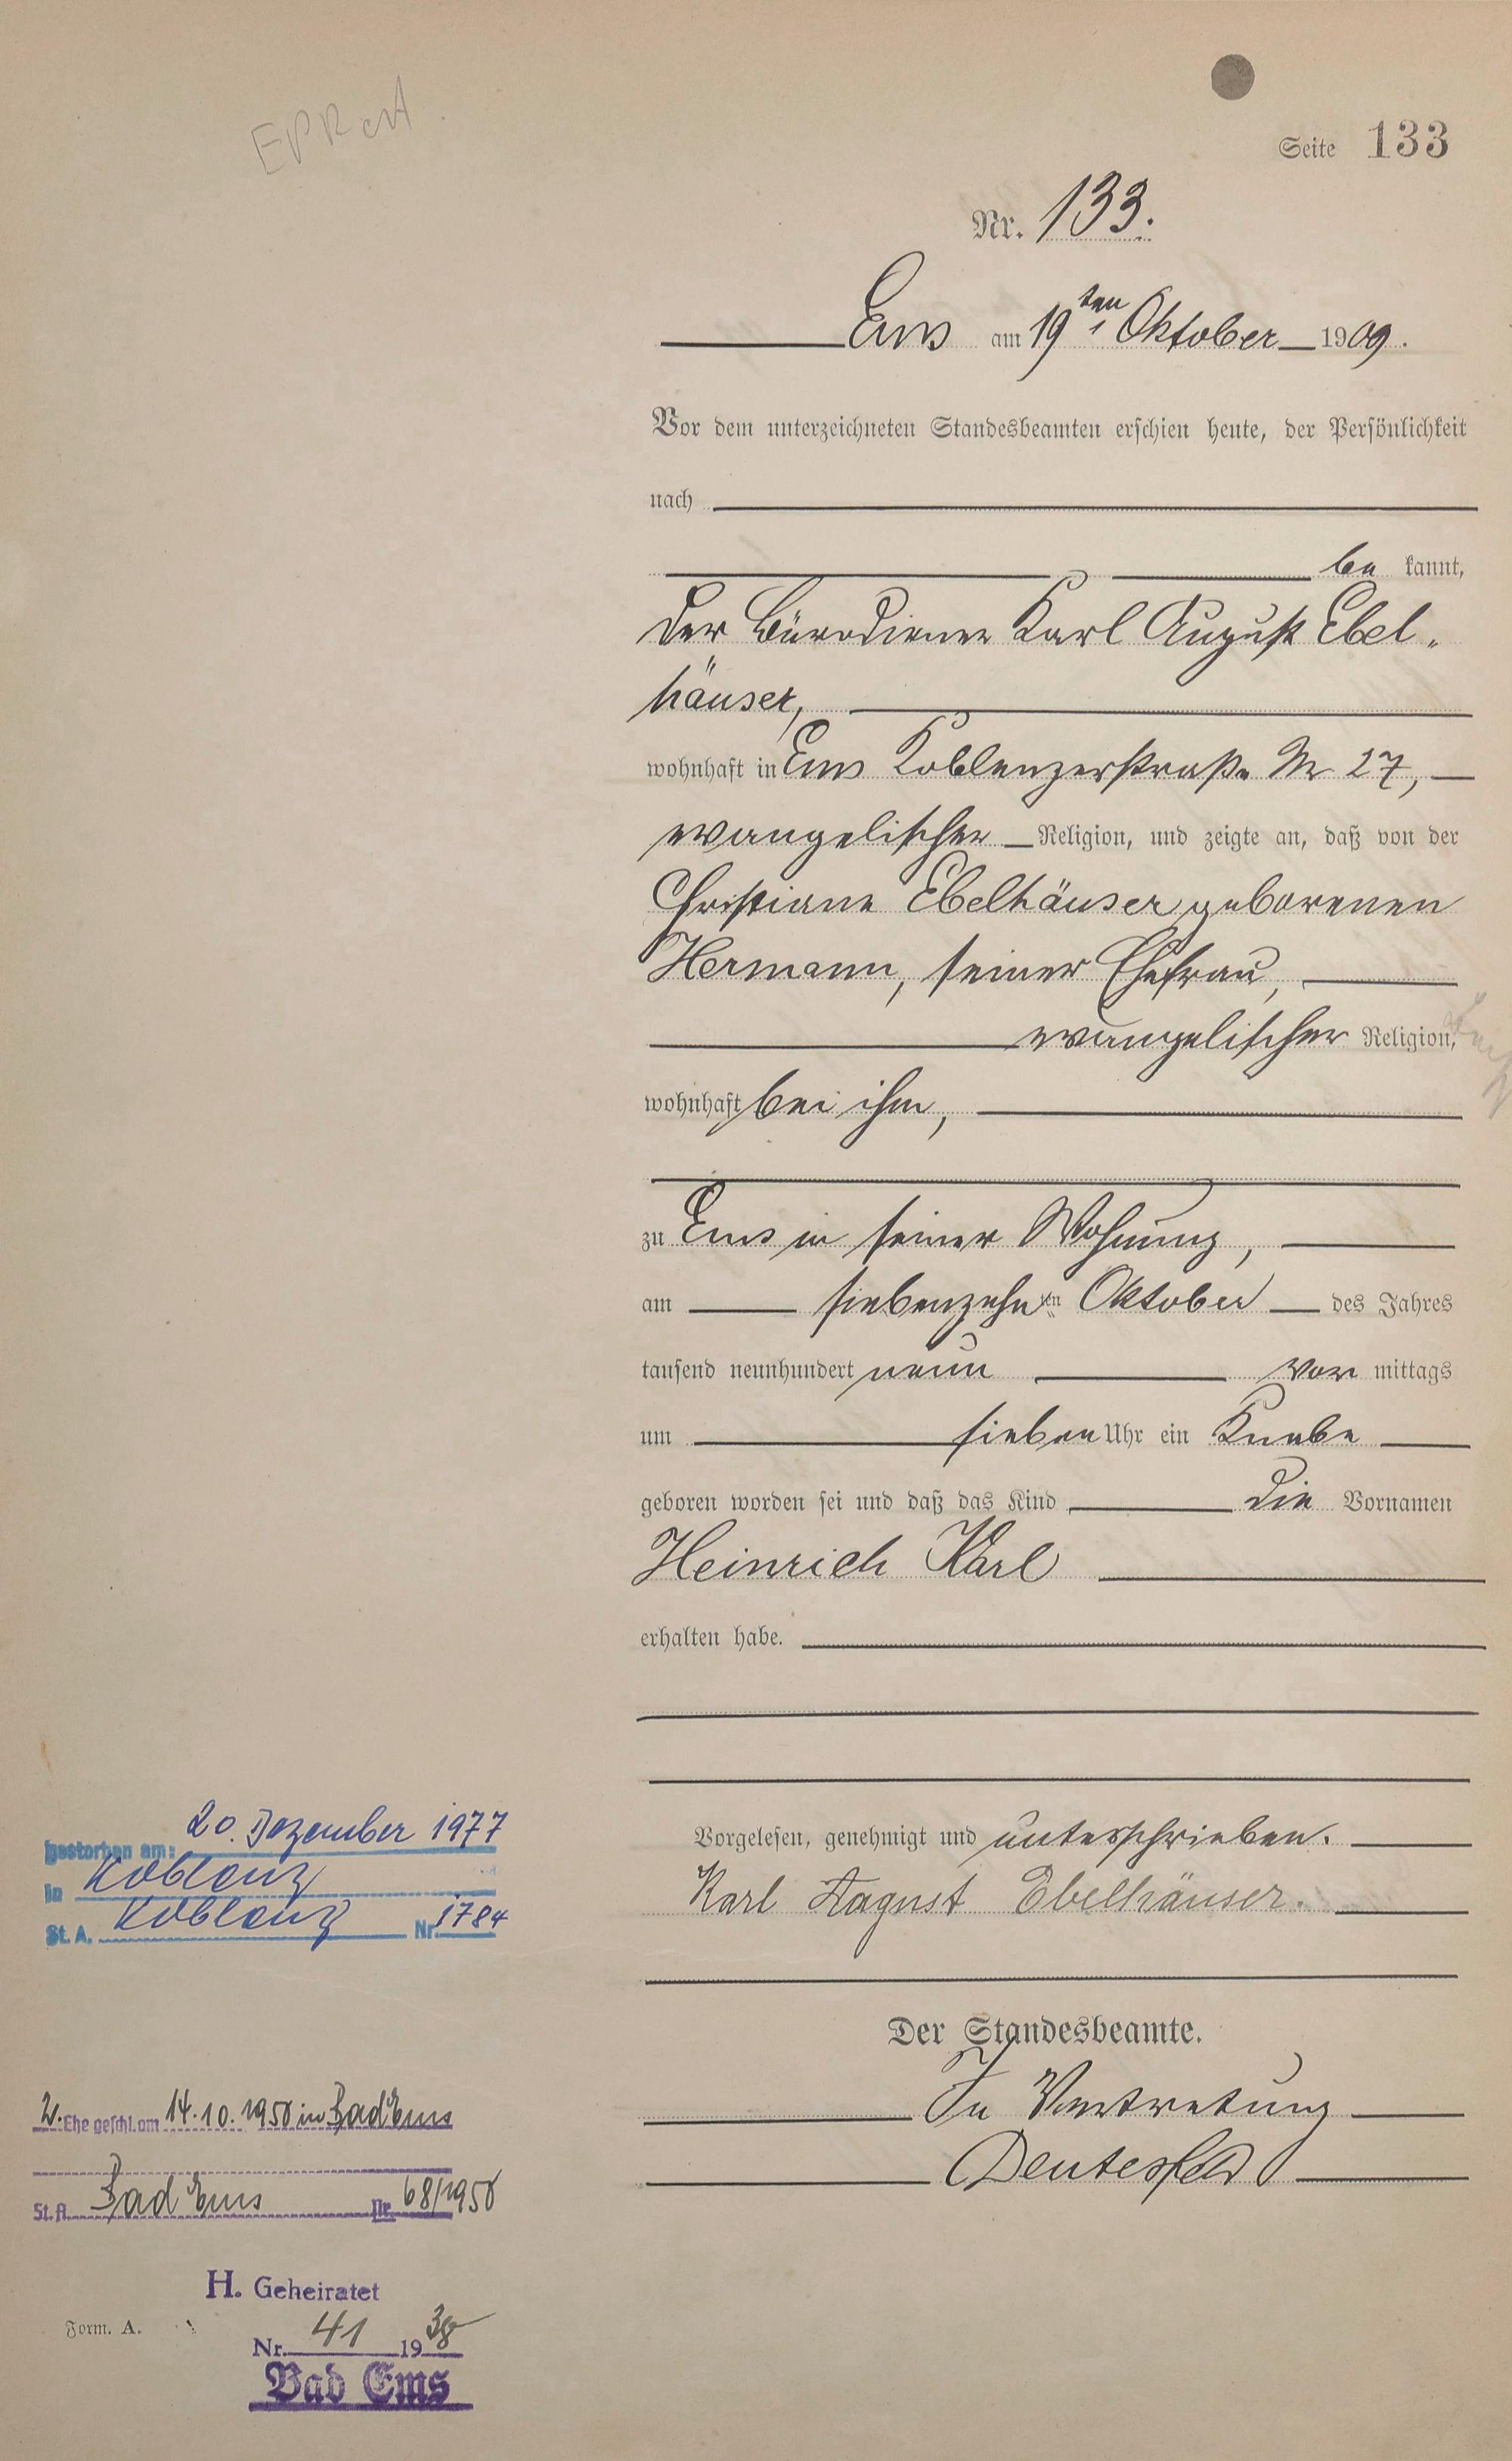 Seite 133
Nr. 133.
Ems am 19ten Oktober 1909.
Vor dem unterzeichneten Standesbeamten erschien heute, der Persönlichkeit
nach
be kannt,
der Bürodiener Karl August Ebel-
häuser,
wohnhaft in Ems Koblenzerstraße Nr 27,
evangelischer Religion, und zeigte an, daß von der
Christiane Ebelhäuser geborenen
Hermann, seiner Ehefrau,
evangelischer Religion,
wohnhaft bei ihm,
zu Ems in seiner Wohnung,
am siebenzehnten Oktober des Jahres
tausend neunhundert neun vor mittags
um sieben Uhr ein Knabe
geboren worden sei und daß das Kind die Vornamen
Heinrich Karl
erhalten habe.
Vorgelesen, genehmigt und unterschrieben.
Karl August Ebelhäuser.
Der Standesbeamte.
In Vertretung
gestorben am: 20. Dezember 1977
in Koblenz
St. A. Koblenz Nr. 1784
2. Ehe geschl. am 14.10.1950 in Bad Ems
St. A. Bad Ems Nr. 68/1950
H. Geheiratet
Form. A.
Nr. 41 1938
Bad Ems